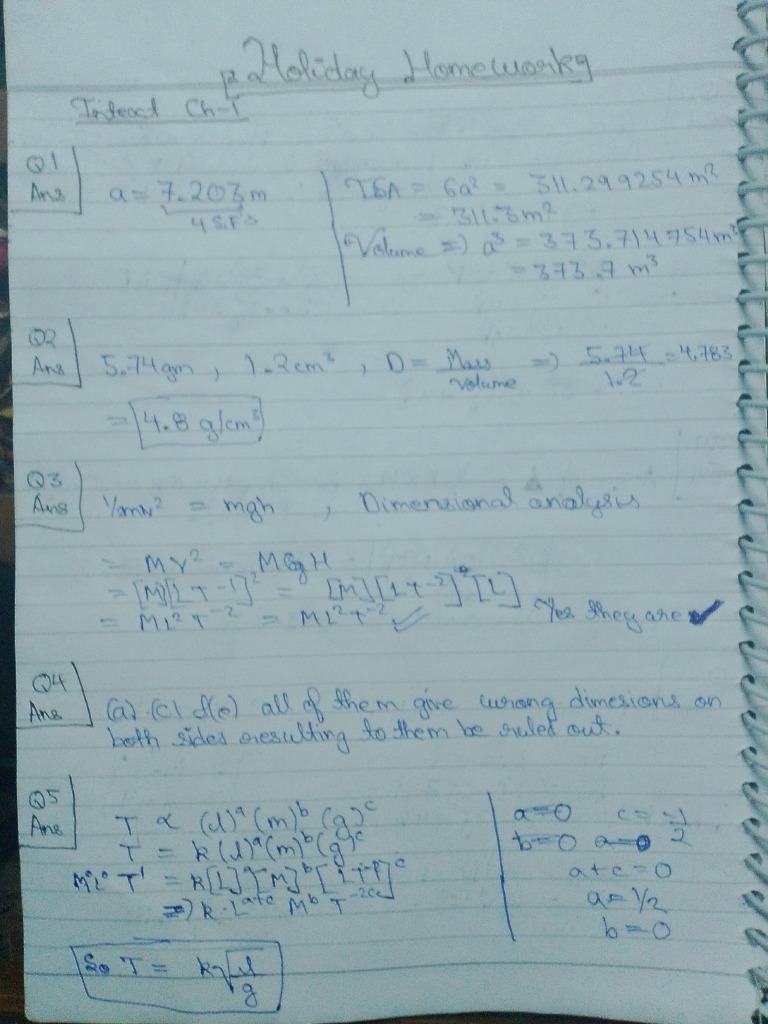 Holiday Homework
Intext Ch-1
Q1
Ans
a = 7.203m
4 S.F's
TSA = 6a² = 311.299254 m²
= 311.3m²
Volume => a³ = 373.714754m³
= 373.7 m³
Q2
Ans
5.74gm , 1.2cm³ , D = Mass/Volume => 5.74/1.2 = 4.783
= 4.8 g/cm³
Q3
Ans
½mv² = mgh , Dimensional analysis
= MV² = MGgH
= [M][LT-1]² = [M][LT-2] [L]
= ML²T-2 = ML²T-2 ✓ Yes they are ✓
Q4
Ans
(a) (c) &(e) all of them give wrong dimesions on
both sides resulting to them be ruled out.
Q5
Ans
T ∝ (l)ᵃ(m)ᵇ(g)ᶜ
T = k(l)ᵃ(m)ᵇ(g)ᶜ
M⁰L⁰T¹ = k[L]ᵃ[M]ᵇ[LT-2]ᶜ
=> k.Lᵃ⁺ᶜ Mᵇ T-2c
So T = k√l/g
a=0 c = -1/2
b=0 a=0
a+c=0
a=1/2
b=0